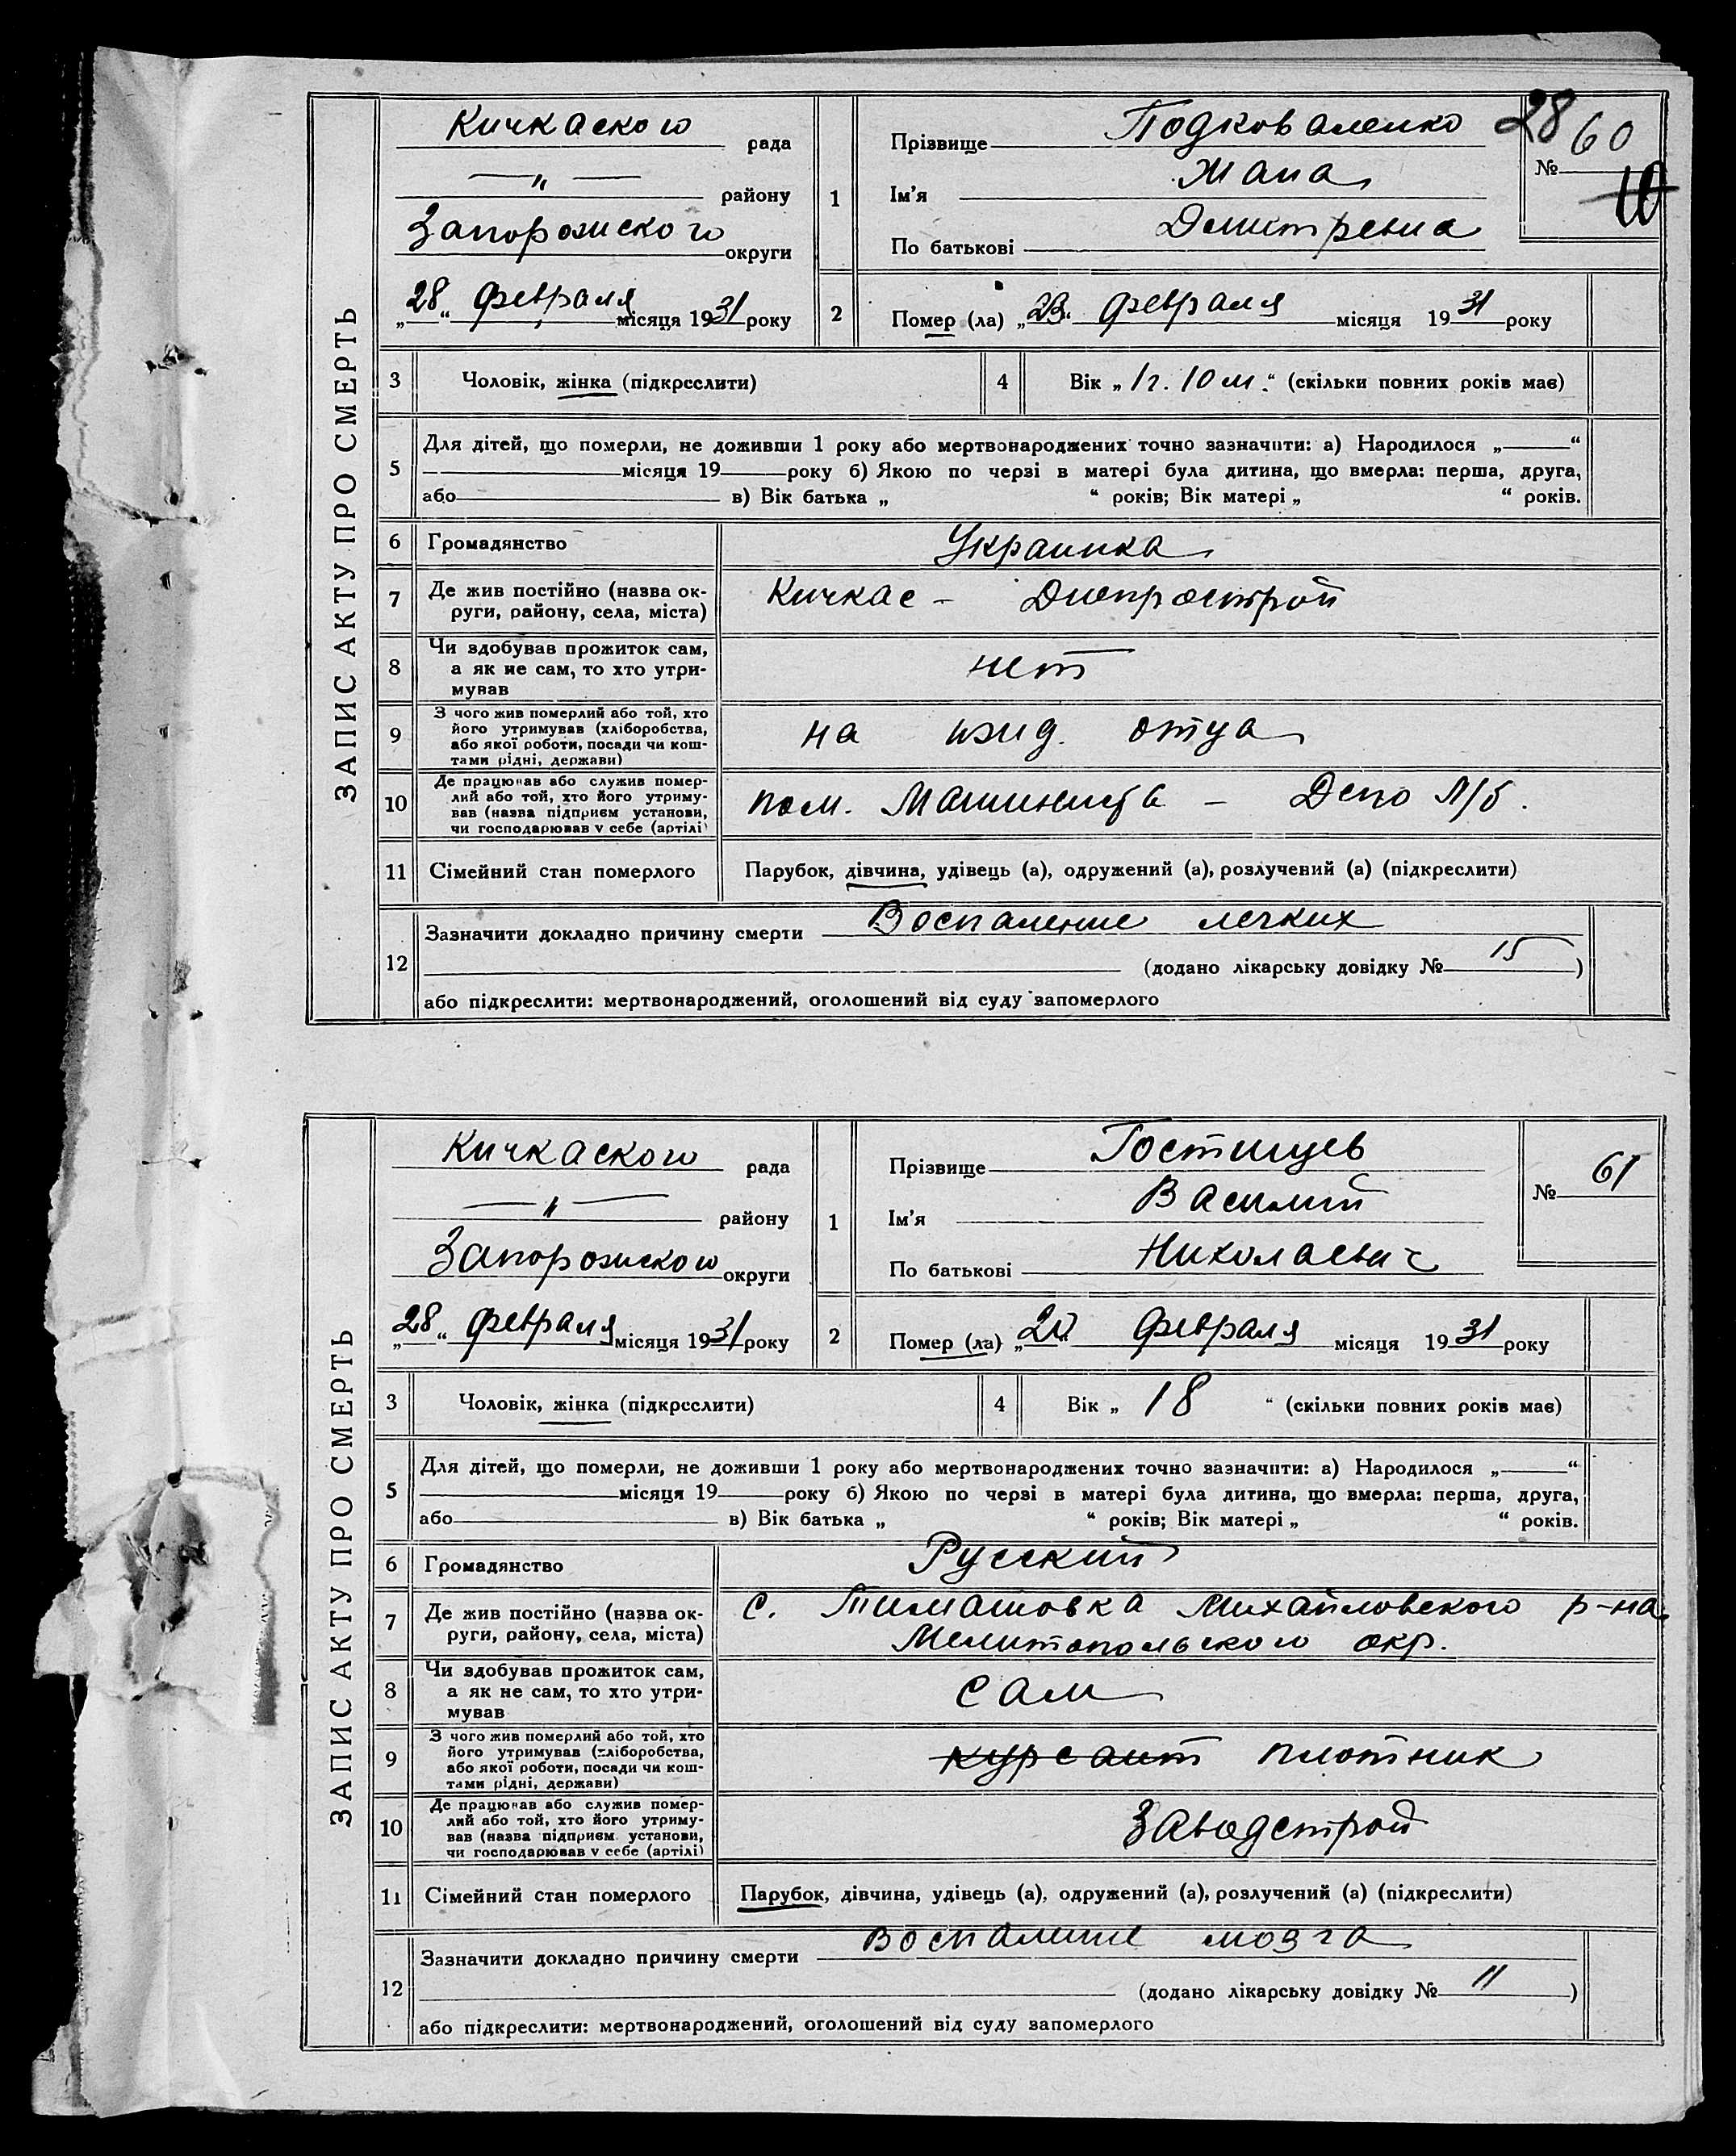 ЗАПИС АКТУ ПРО СМЕРТЬ
Кичкаского рада
—„— району
Запорожского округи
„28“ февраля місяця 1931 року
1
Прізвище Подковаленко
Ім'я
По батькові Дмитревна
28 60
№
10
2
Помер (ла) „ “ февраля місяця 1931 року
3 Чоловік, жінка (підкреслити)
4 Вік „1 г. 10 м.“ (скільки повних років має)
5 Для дітей, що померли, не доживши 1 року або мертвонароджених точно зазначити: а) Народилося „ “
місяця 19 року б) Якою по черзі в матері була дитина, що вмерла: перша, друга,
або в) Вік батька „ “ років; Вік матері „ “ років.
6 Громадянство Украинка
7 Де жив постійно (назва ок-
руги, району, села, міста) Кичкас – Днепрострой
8 Чи здобував прожиток сам,
а як не сам, то хто утри-
мував нет
9 З чого жив померлий або той, хто
його утримував (хліборобства,
або якої роботи, посади чи кош-
тами рідні, держави) на ижд. отца
10 Де працював або служив помер-
лий або той, хто його утриму-
вав (назва підприєм установи,
чи господарював у себе (артілі) пом. Машиниста – Депо Л/б.
11 Сімейний стан померлого Парубок, дівчина, удівець (а), одружений (а), розлучений (а) (підкреслити)
12 Зазначити докладно причину смерти Воспаление легких
(додано лікарську довідку № 15)
або підкреслити: мертвонароджений, оголошений від суду запомерлого
ЗАПИС АКТУ ПРО СМЕРТЬ
Кичкаского рада
—„— району
Запорожского округи
„28“ февраля місяця 1931 року
1
Прізвище Гостищев
Ім'я Василий
По батькові Николаевич
№ 61
2
Помер (ла) „ “ февраля місяця 1931 року
3 Чоловік, жінка (підкреслити)
4 Вік „ 18 “ (скільки повних років має)
5 Для дітей, що померли, не доживши 1 року або мертвонароджених точно зазначити: а) Народилося „ “
місяця 19 року б) Якою по черзі в матері була дитина, що вмерла: перша, друга,
або в) Вік батька „ “ років; Вік матері „ “ років.
6 Громадянство Русский
7 Де жив постійно (назва ок-
руги, району, села, міста) с. Тимашовка Михайловского р-на
Мелитопольского окр.
8 Чи здобував прожиток сам,
а як не сам, то хто утри-
мував сам
9 З чого жив померлий або той, хто
його утримував (хліборобства,
або якої роботи, посади чи кош-
тами рідні, держави) курсант плотник
10 Де працював або служив помер-
лий або той, хто його утриму-
вав (назва підприєм установи,
чи господарював у себе (артілі) Заводстрой
11 Сімейний стан померлого Парубок, дівчина, удівець (а), одружений (а), розлучений (а) (підкреслити)
12 Зазначити докладно причину смерти Воспаление мозга
(додано лікарську довідку № 11)
або підкреслити: мертвонароджений, оголошений від суду запомерлого